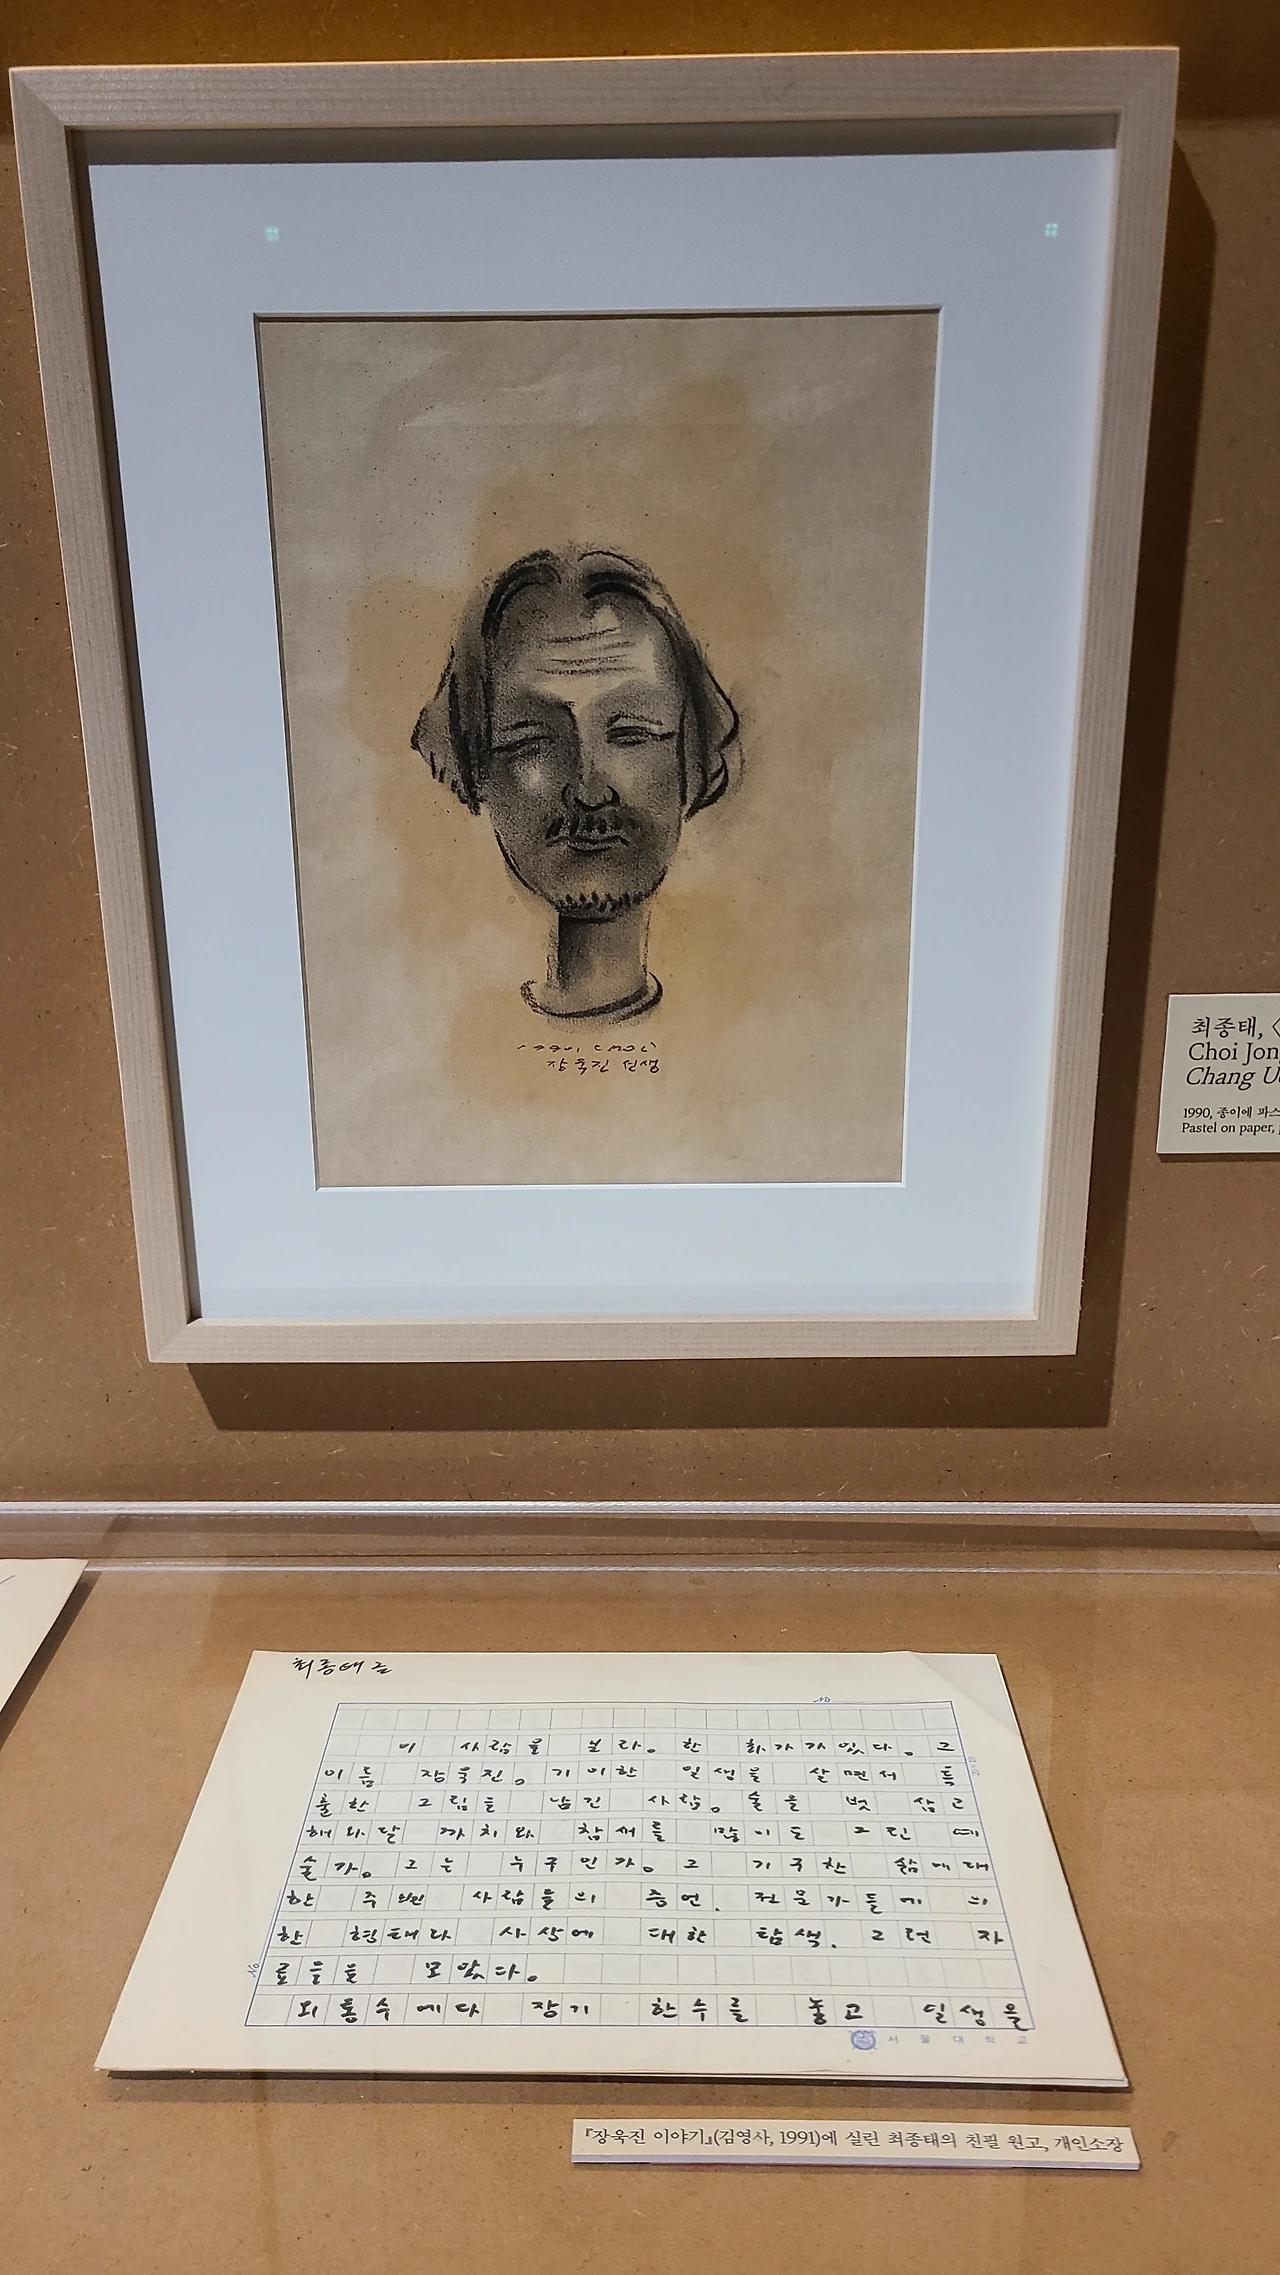 장욱진 선생
최종태,
Choi Jon
Chang U
1990, 종이에 파스
Pastel on paper,
최종태 글
No
이 사람을 보라. 한 화가가 있다. 그
이름 장욱진. 기이한 일생을 살면서 특
출한 그림을 남긴 사람. 술을 벗 삼고
해와 달 까치와 참새를 많이도 그린 예
술가. 그는 누구인가. 그 기구한 삶에 대
한 주변 사람들의 증언. 전문가들에 의
한 형태라 사상에 대한 탐색. 그런 자
료들을 모았다.
외통수에다 장기 한 수를 놓고 일생을
No
서울대학교
『장욱진 이야기』(김영사, 1991)에 실린 최종태의 친필 원고, 개인소장